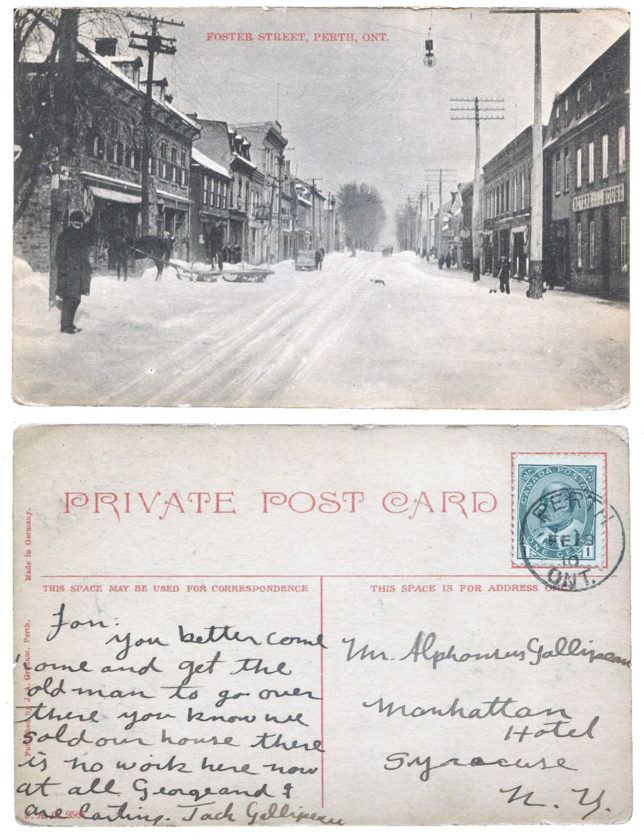 FOSTER STREET, PERTH, ONT.
EXCHANGE HOUSE
PRIVATE POST CARD
CANADA POSTAGE
ONE CENT
1 1
PERTH
FE 1
10
ONT.
THIS SPACE MAY BE USED FOR CORRESPONDENCE
THIS SPACE IS FOR ADDRESS ONLY
Made in Germany.
Published by J. A. Graham, Perth.
Fon:
you better come
come and get the
old man to go over
there you know we
sold our house there
is no work here now
at all George and I
are carting. Jack Gallipeau
Mr. Alphonsus Gallipeau
Manhattan
Hotel
Syracuse
N. Y.